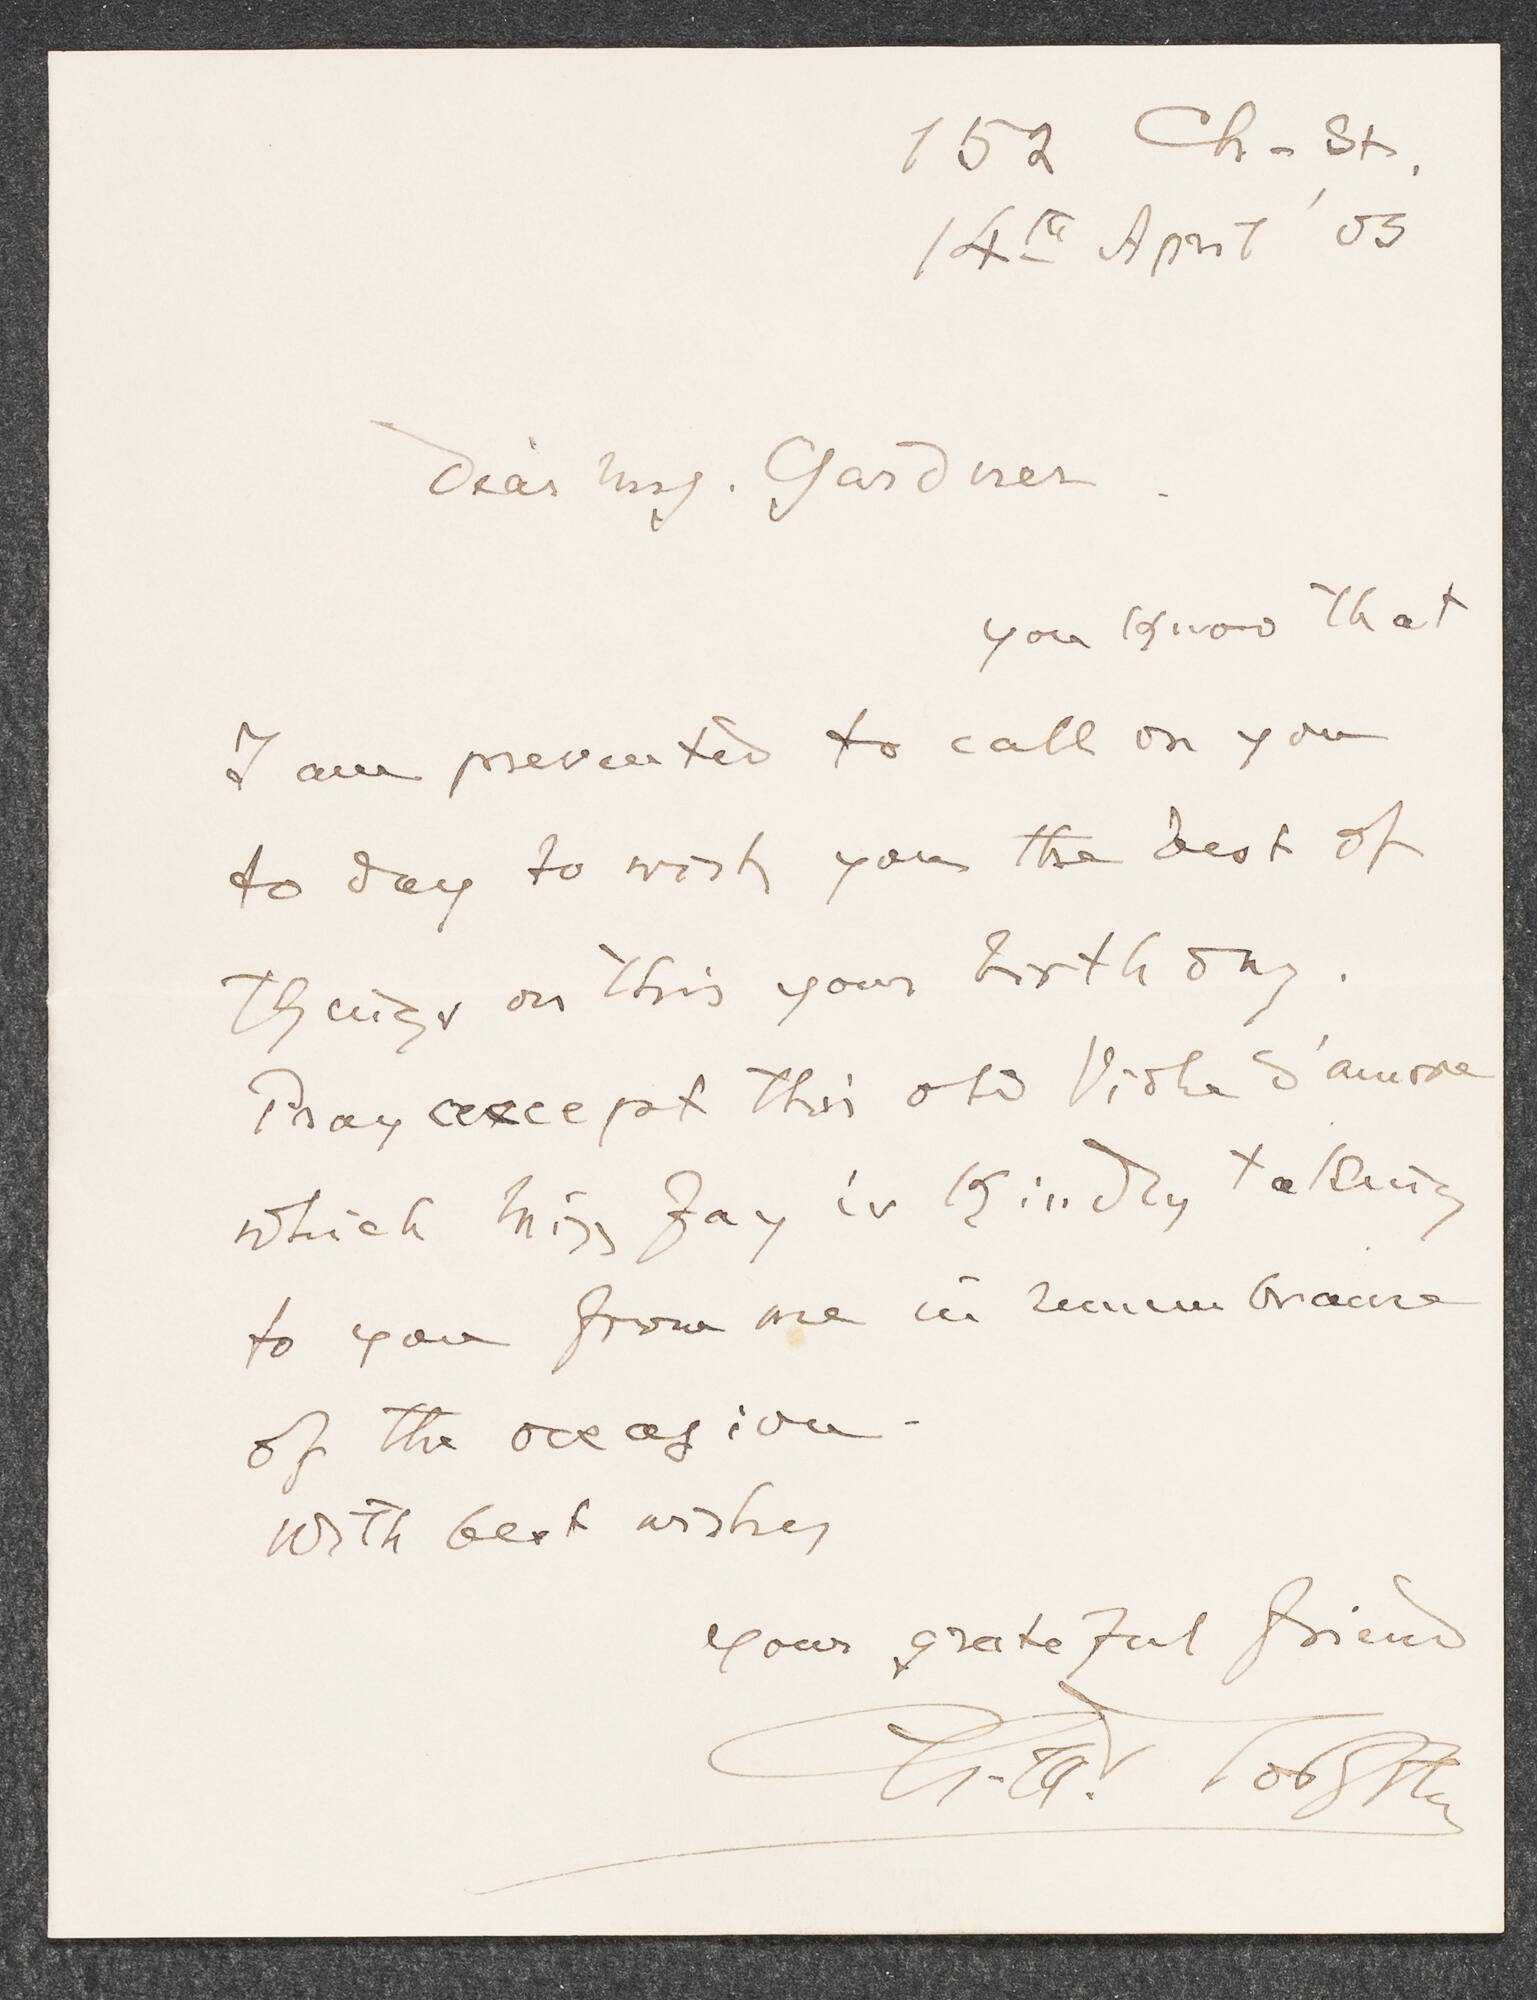 152 Ch - St.
14th April '03
Dear Mrs. Gardner.
you know that
I am prevented to call on you
to day to wish you the best of
things on this your birthday.
Pray except this old Viola d'amore
which Miss Fay is kindly taking
to you from me in remembrance
of the occasion -
with best wishes
your grateful friend
Ch. M. Loeffler